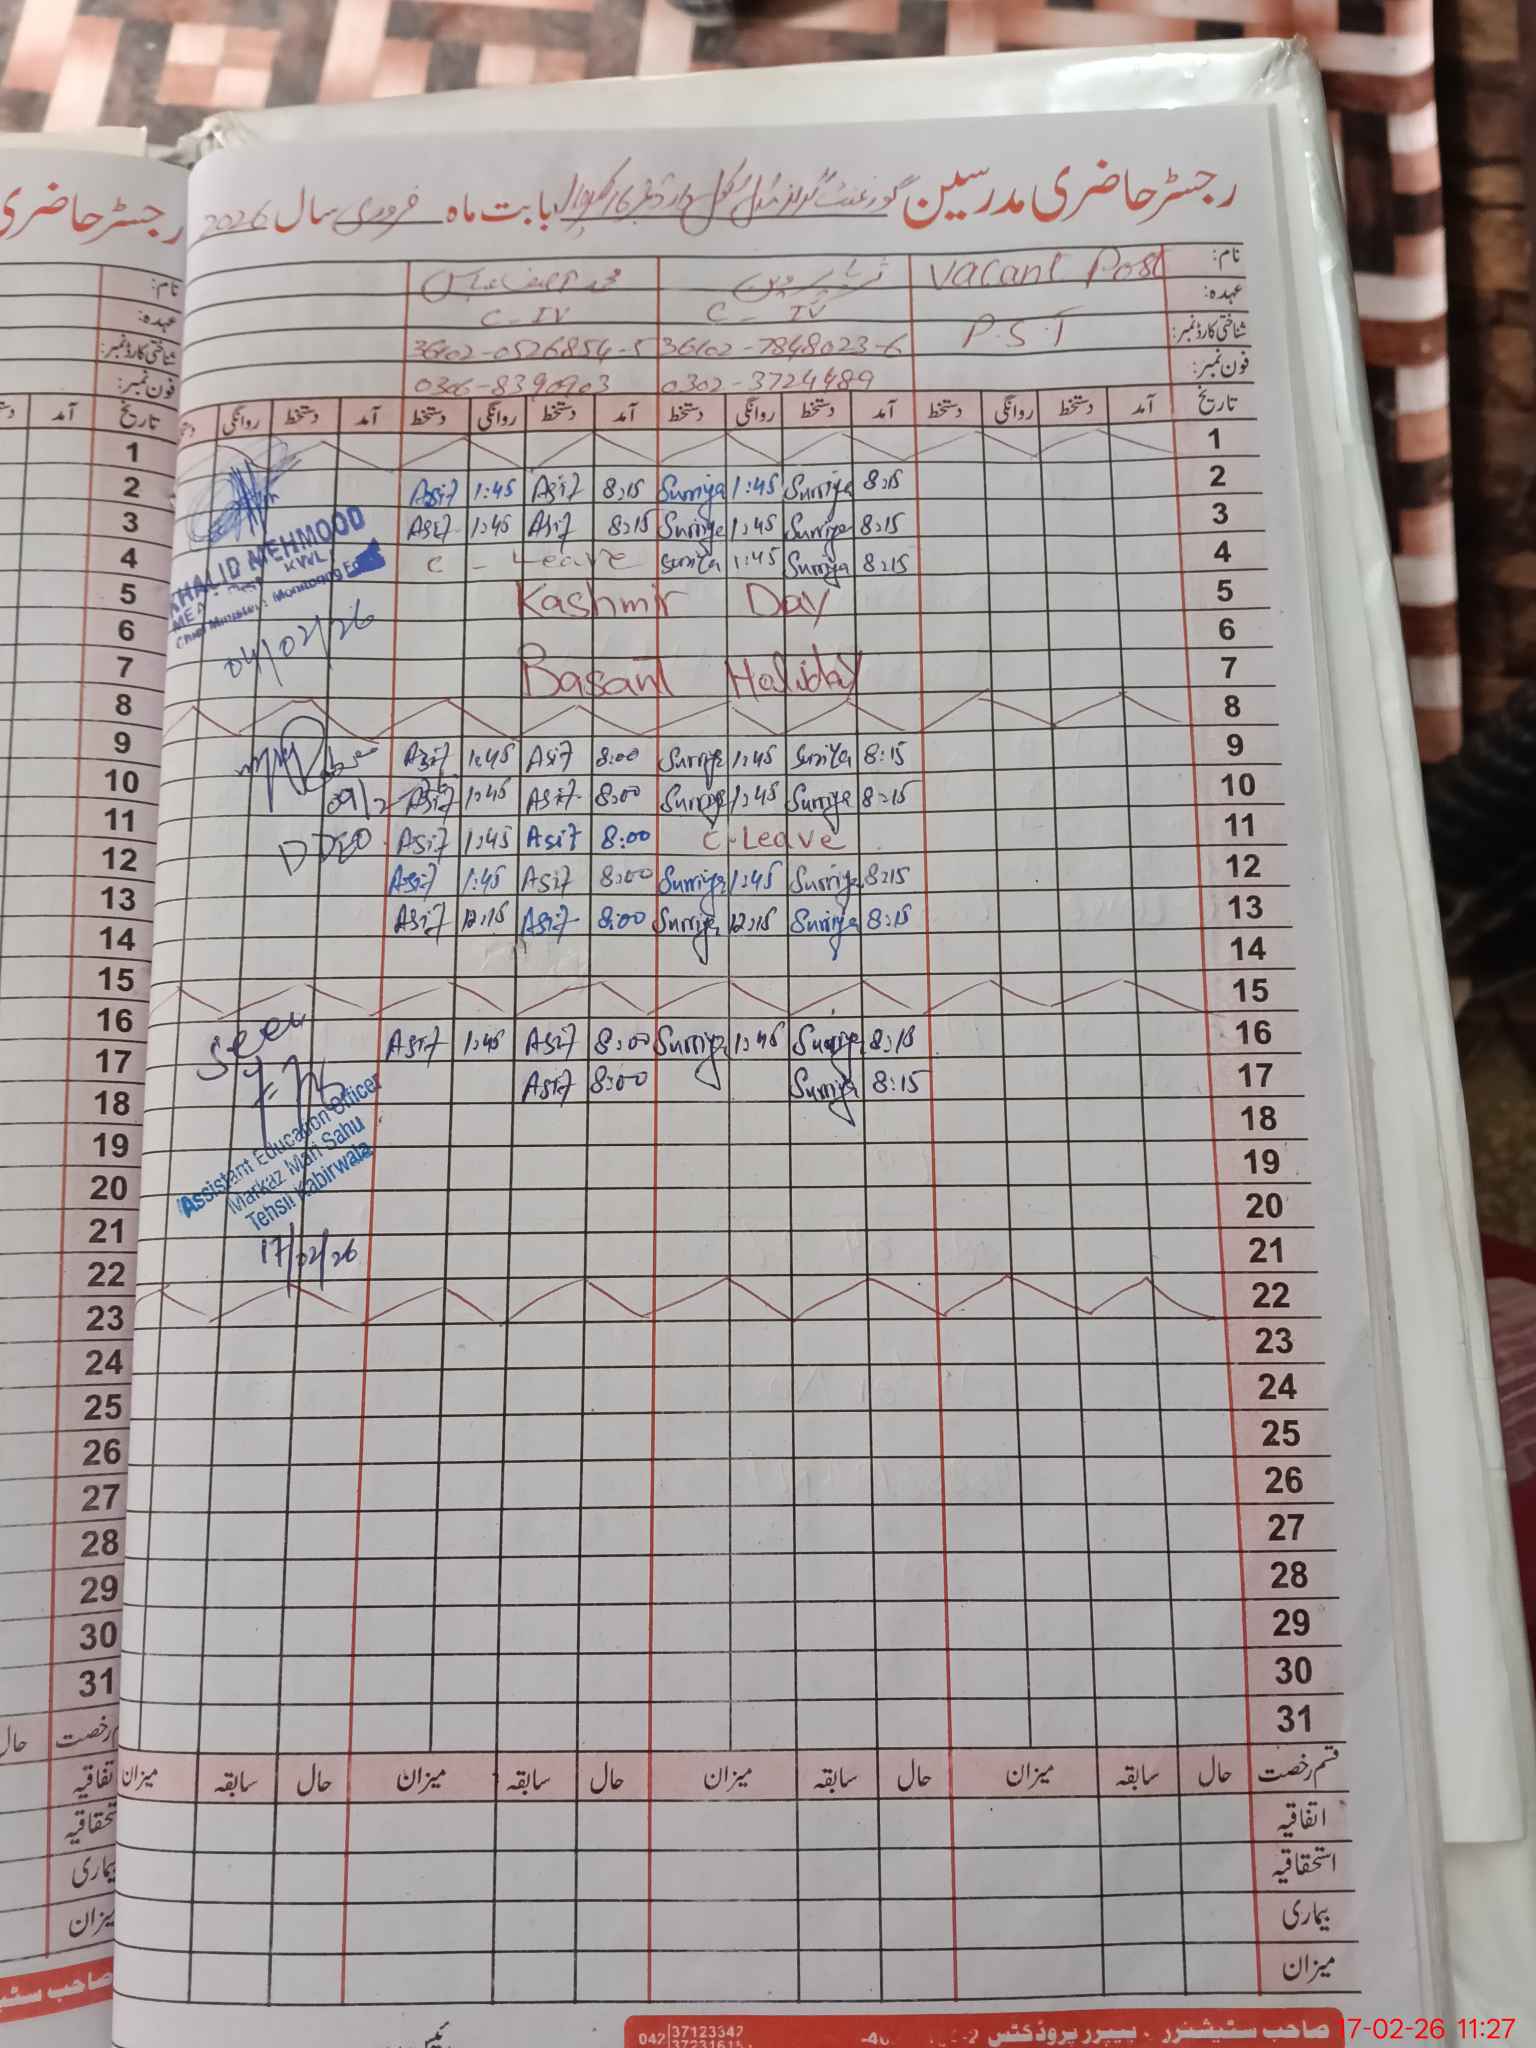 رجسٹر حاضری مدرسین گورنمنٹ گرلز مڈل سکول بابت ماہ فروری سال 2026
نام: Vacant Post ثریا پروین محمد آصف عباس
عہدہ: C-IV C-IV
شناختی کارڈ نمبر: P.S.T 36102-7848023-6 36102-0526854-5
فون نمبر: 0302-3724489 0306-8390903
تاریخ آمد دستخط روانگی دستخط آمد دستخط روانگی دستخط آمد دستخط روانگی دستخط
1
2 8:15 Surriya 1:45 Surriya 8:15 Asif 1:45 Asif
3 8:15 Surriya 1:45 Surriya 8:15 Asif 1:45 Asif
4 8:15 Surriya 1:45 C-Leave
5 Kashmir Day
6
7 Basant Holiday
8
9 8:15 1:45 Surriya 8:00 Asif 1:45 Asif
10 8:15 Surriya 1:45 Surriya 8:00 Asif 1:45 Asif
11 C-Leave 8:00 Asif 1:45 Asif
12 8:15 Surriya 1:45 Surriya 8:00 Asif 1:45 Asif
13 8:15 Surriya 12:15 Surriya 8:00 Asif 12:15 Asif
14
15
16 8:15 Surriya 1:45 Surriya 8:00 Asif 1:45 Asif
17 8:15 Surriya 8:00 Asif
18
19
20
21
22
23
24
25
26
27
28
29
30
31
قسم رخصت حال سابقہ میزان حال سابقہ میزان حال سابقہ میزان حال سابقہ میزان
اتفاقیہ
استحقاقیہ
بیماری
میزان
KHALID MEHMOOD
MEA KWL
Chief Minister's Monitoring
04/02/26
09/2
DDEO
Seen
Assistant Education Officer
Markaz Mari Sahu
Tehsil Kabirwala
17/02/26
صاحب سٹیشنرز . پیپر پروڈکٹس
042 37123342
37231615
رجسٹر حاضری
نام:
عہدہ:
شناختی کارڈ نمبر:
فون نمبر:
تاریخ آمد
1
2
3
4
5
6
7
8
9
10
11
12
13
14
15
16
17
18
19
20
21
22
23
24
25
26
27
28
29
30
31
رخصت حال
میزان
17-02-26 11:27